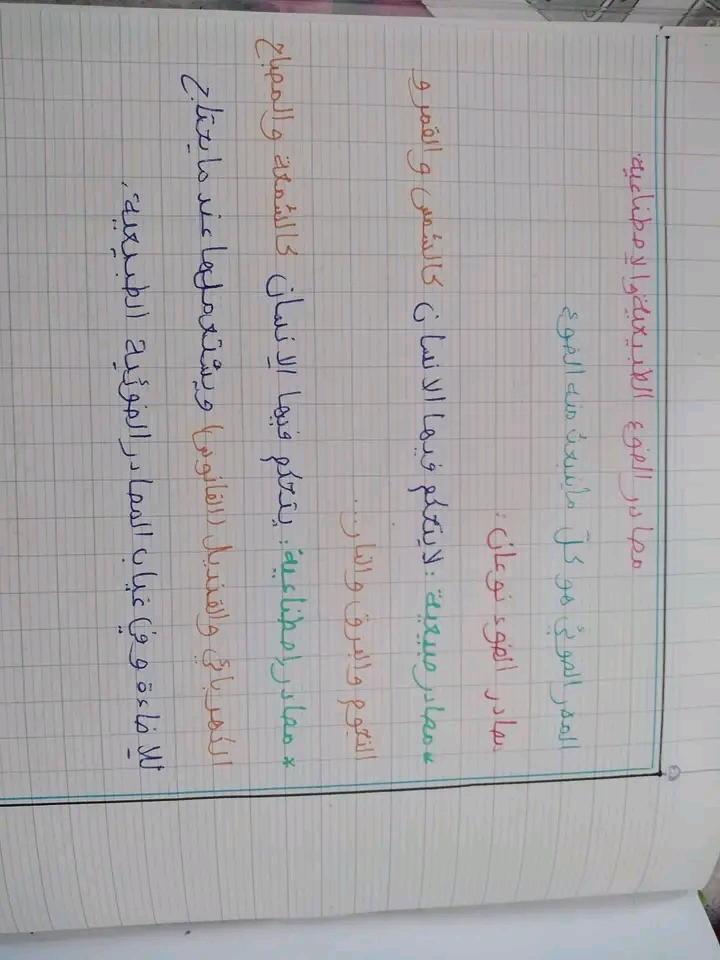 مصادر الضوء الطبيعية والاصطناعية.
المصدر الضوئي هو كلّ ما ينبعث منه الضوء
مصادر الضوء نوعان:
* مصادر طبيعية: لا يتحكم فيها الانسان كالشمس والقمر و
النجوم والبرق والنار...
* مصادر اصطناعية: يتحكم فيها الإنسان كالشمعة والمصباح
الكهربائي والقنديل (الفانوس) ويستعملها عند ما يحتاج
للإضاءة وفي غياب المصادر الضوئية الطبيعية.